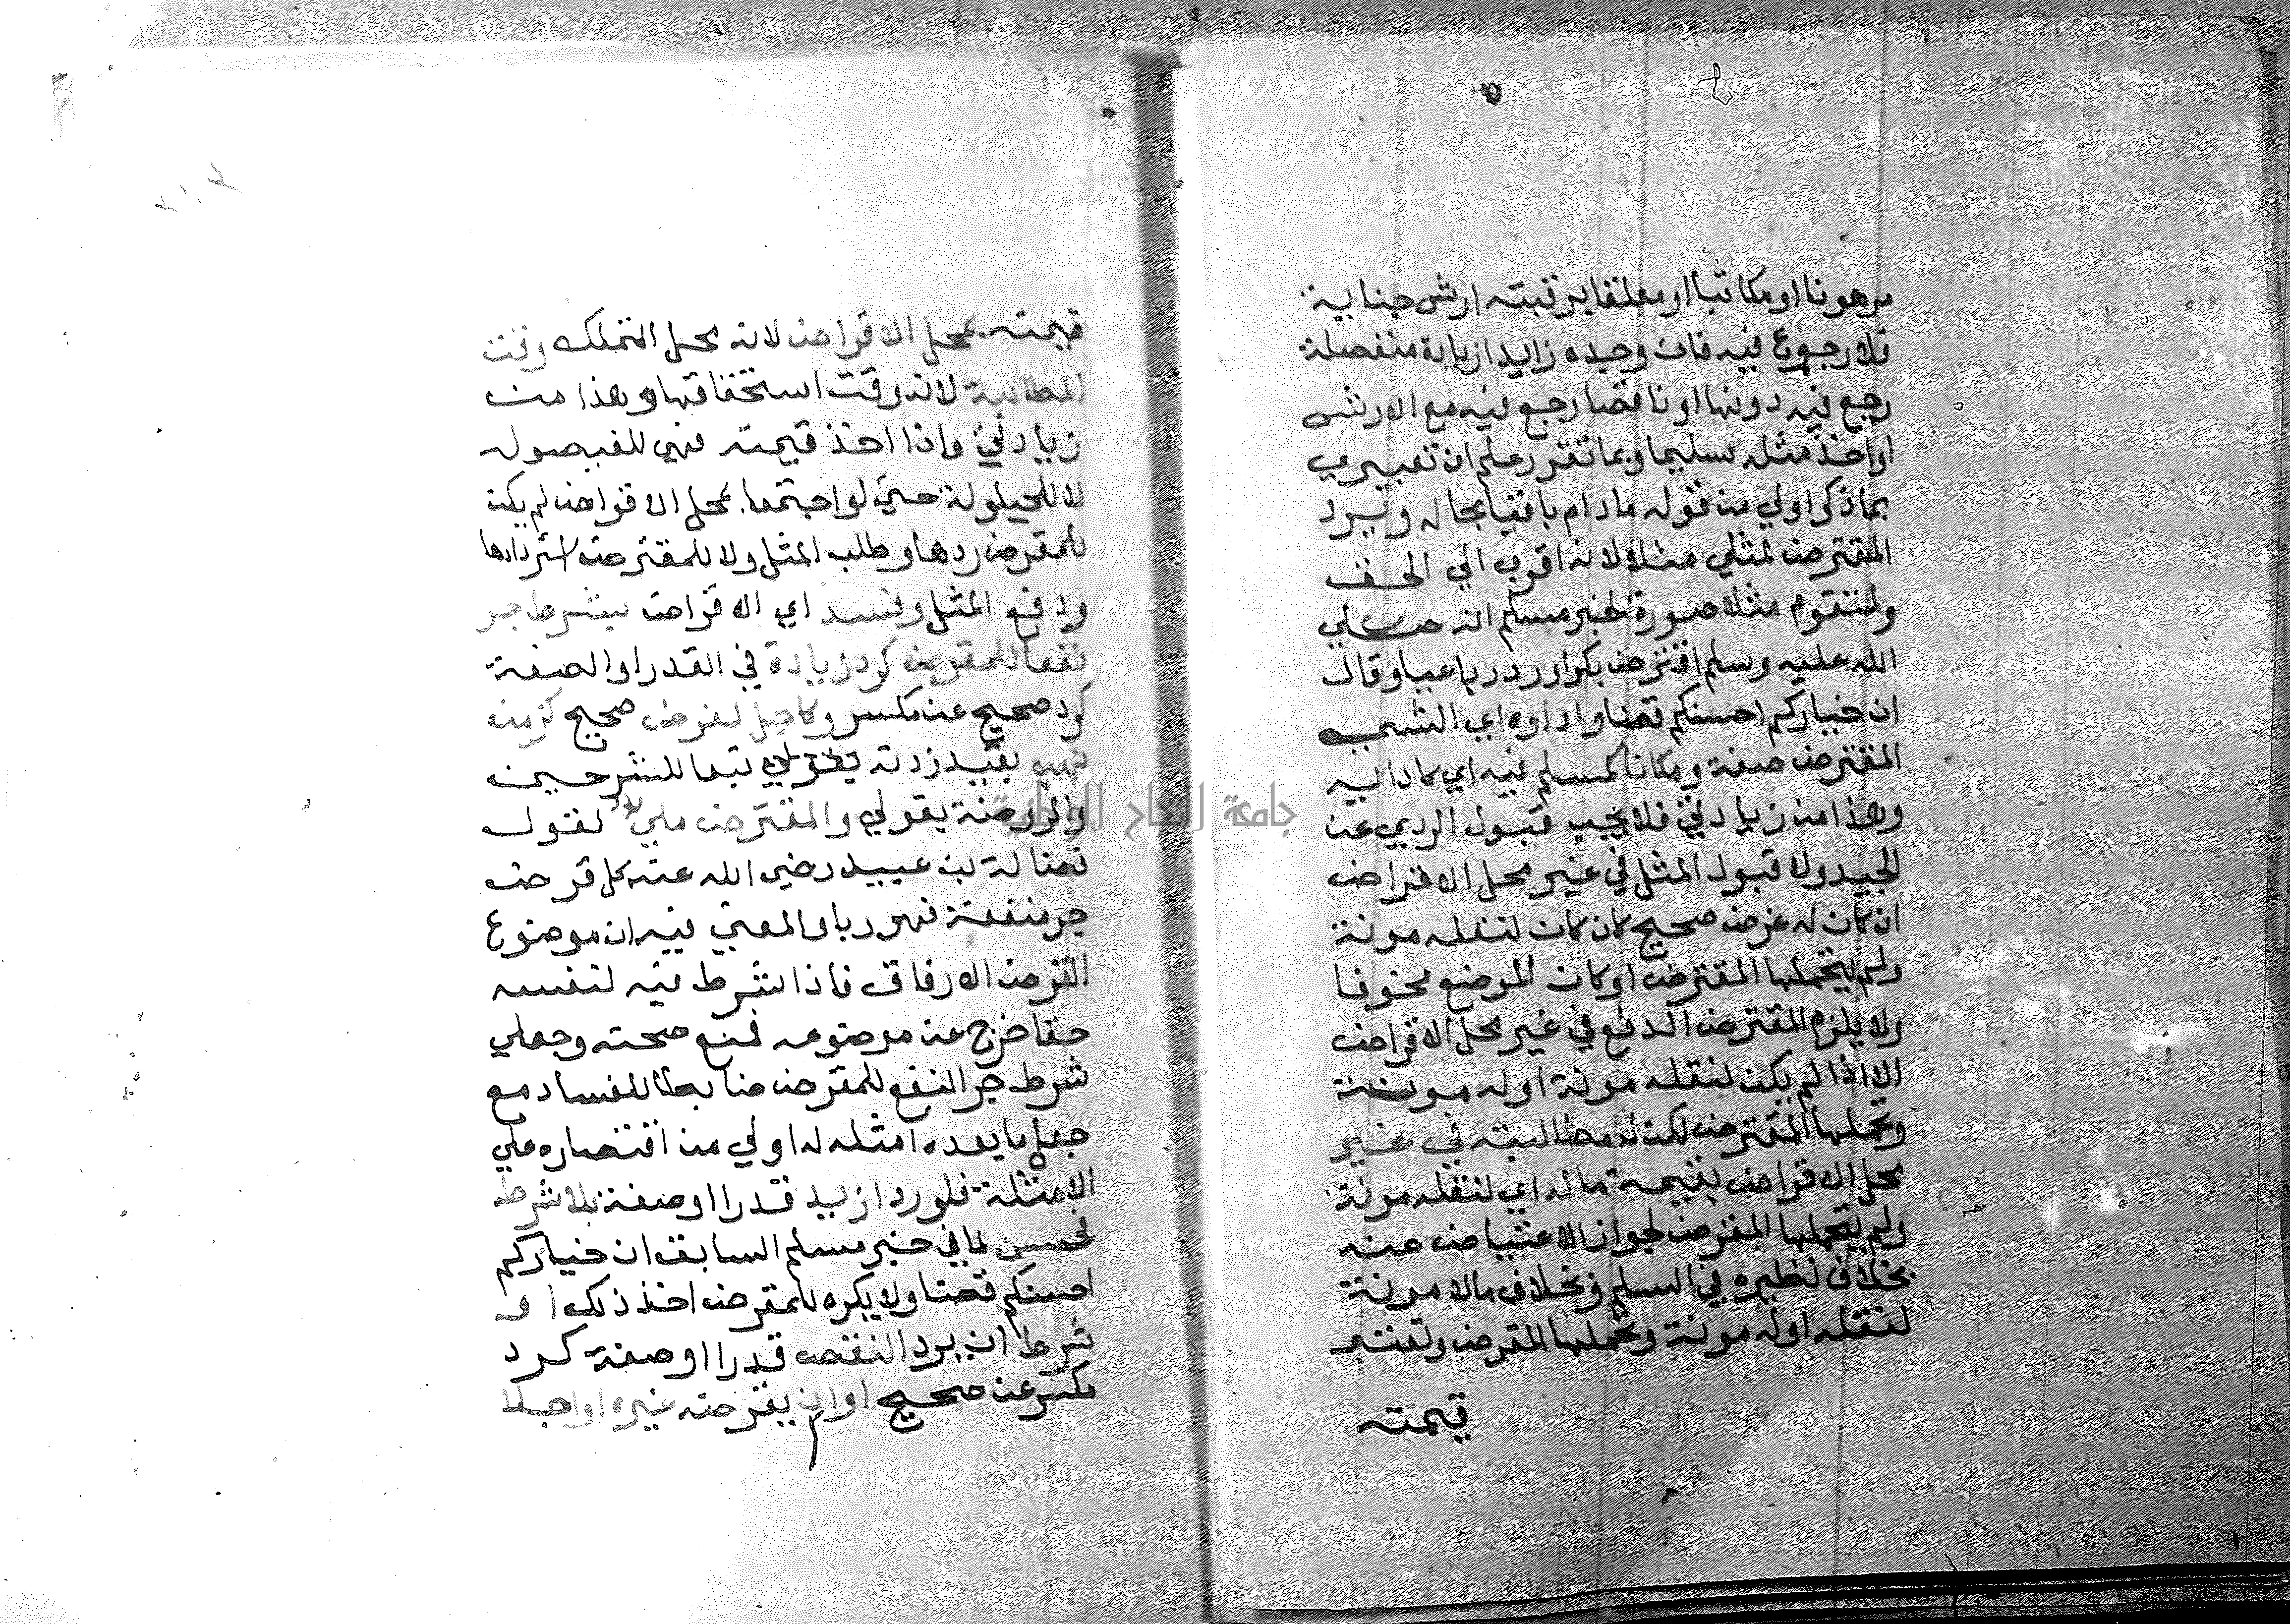 مرهونا او مكاتبا او معلقا برقبته ارش جناية
فلا رجوع فيه فان وجده زايدا زيادة منفصلة
رجع فيه دونها او ناقصا رجع فيه مع الارش
او اخذ مثله سليما وبما تقرر علم ان تعبيري
بما ذكر اولي من قوله ما دام باقيا بحاله ويرد
المقترض لمثلي مثلا لانه اقرب الي الحق
ولمتقوم مثلا صورة لخبر مسلم انه صلي
الله عليه وسلم اقترض بكرا ورد رباعيا وقال
ان خياركم احسنكم قضا واداوه اي الشي
المقترض صفة ومكانا كمسلم فيه اي كادايه
وهذا من زيادتي فلا يجب قبول الردي عن
الجيد ولا قبول المثل في غير محل الاقتراض
ان كان له غرض صحيح كان كان لنقله مونة
ولم يتحملها المقترض او كان الموضع مخوفا
ولا يلزم المقترض الدفع في غير محل الاقراض
الا اذا لم يكن لنقله مونة او له مونة
وتحملها المقترض لكن له مطالبته في غير
محل الاقراض بقيمة ماله اي لنقله مونة
ولم يتحملها المقرض لجواز الاعتياض عنه
بخلاف نظيره في السلم وبخلاف ما لا مونة
لنقله او له مونة وتحملها المقرض وتعتبر
قيمته
قيمته بمحل الاقراض لانه محل التملك وقت
المطالبة لانه وقت استحقاقها وهذا من
زيادتي واذا اخذ قيمته فهي للفيصوله
لا للحيلولة حتي لو اجتمعا بمحل الاقراض لم يكن
للمقرض ردها وطلب المثل ولا للمقترض استردادها
ودفع المثل وفسد اي الاقراض بشرط جر
نفعا للمقرض كرد زيادة في القدر او الصفة
كرد صحيح عن مكسر وكاجل لغرض صحيح كزمن
نهب بقيد زدته بقولي تبعا للشرحين
والروضة بقولي والمقترض ملي لقول
فضالة بن عبيد رضي الله عنه كل قرض
جر منفعة فهو ربا والمعني فيه ان موضوع
القرض الارفاق فاذا شرط فيه لنفسه
حقا خرج عن موضوعه فمنع صحته وجعلي
شرط جر النفع للمقرض ضابطا للفساد مع
جعل ما بعده امثلة له اولي من اقتصاره علي
الامثلة فلو رد ازيد قدرا او صفة بلا شرط
فحسن لما في خبر مسلم السابق ان خياركم
احسنكم قضا ولا يكره للمقرض اخذ ذلك او
شرط ان يرد انقص قدرا او صفة كرد
مكسر عن صحيح او ان يقرضه غيره او اجلا
جامعة النجاح الوطنية